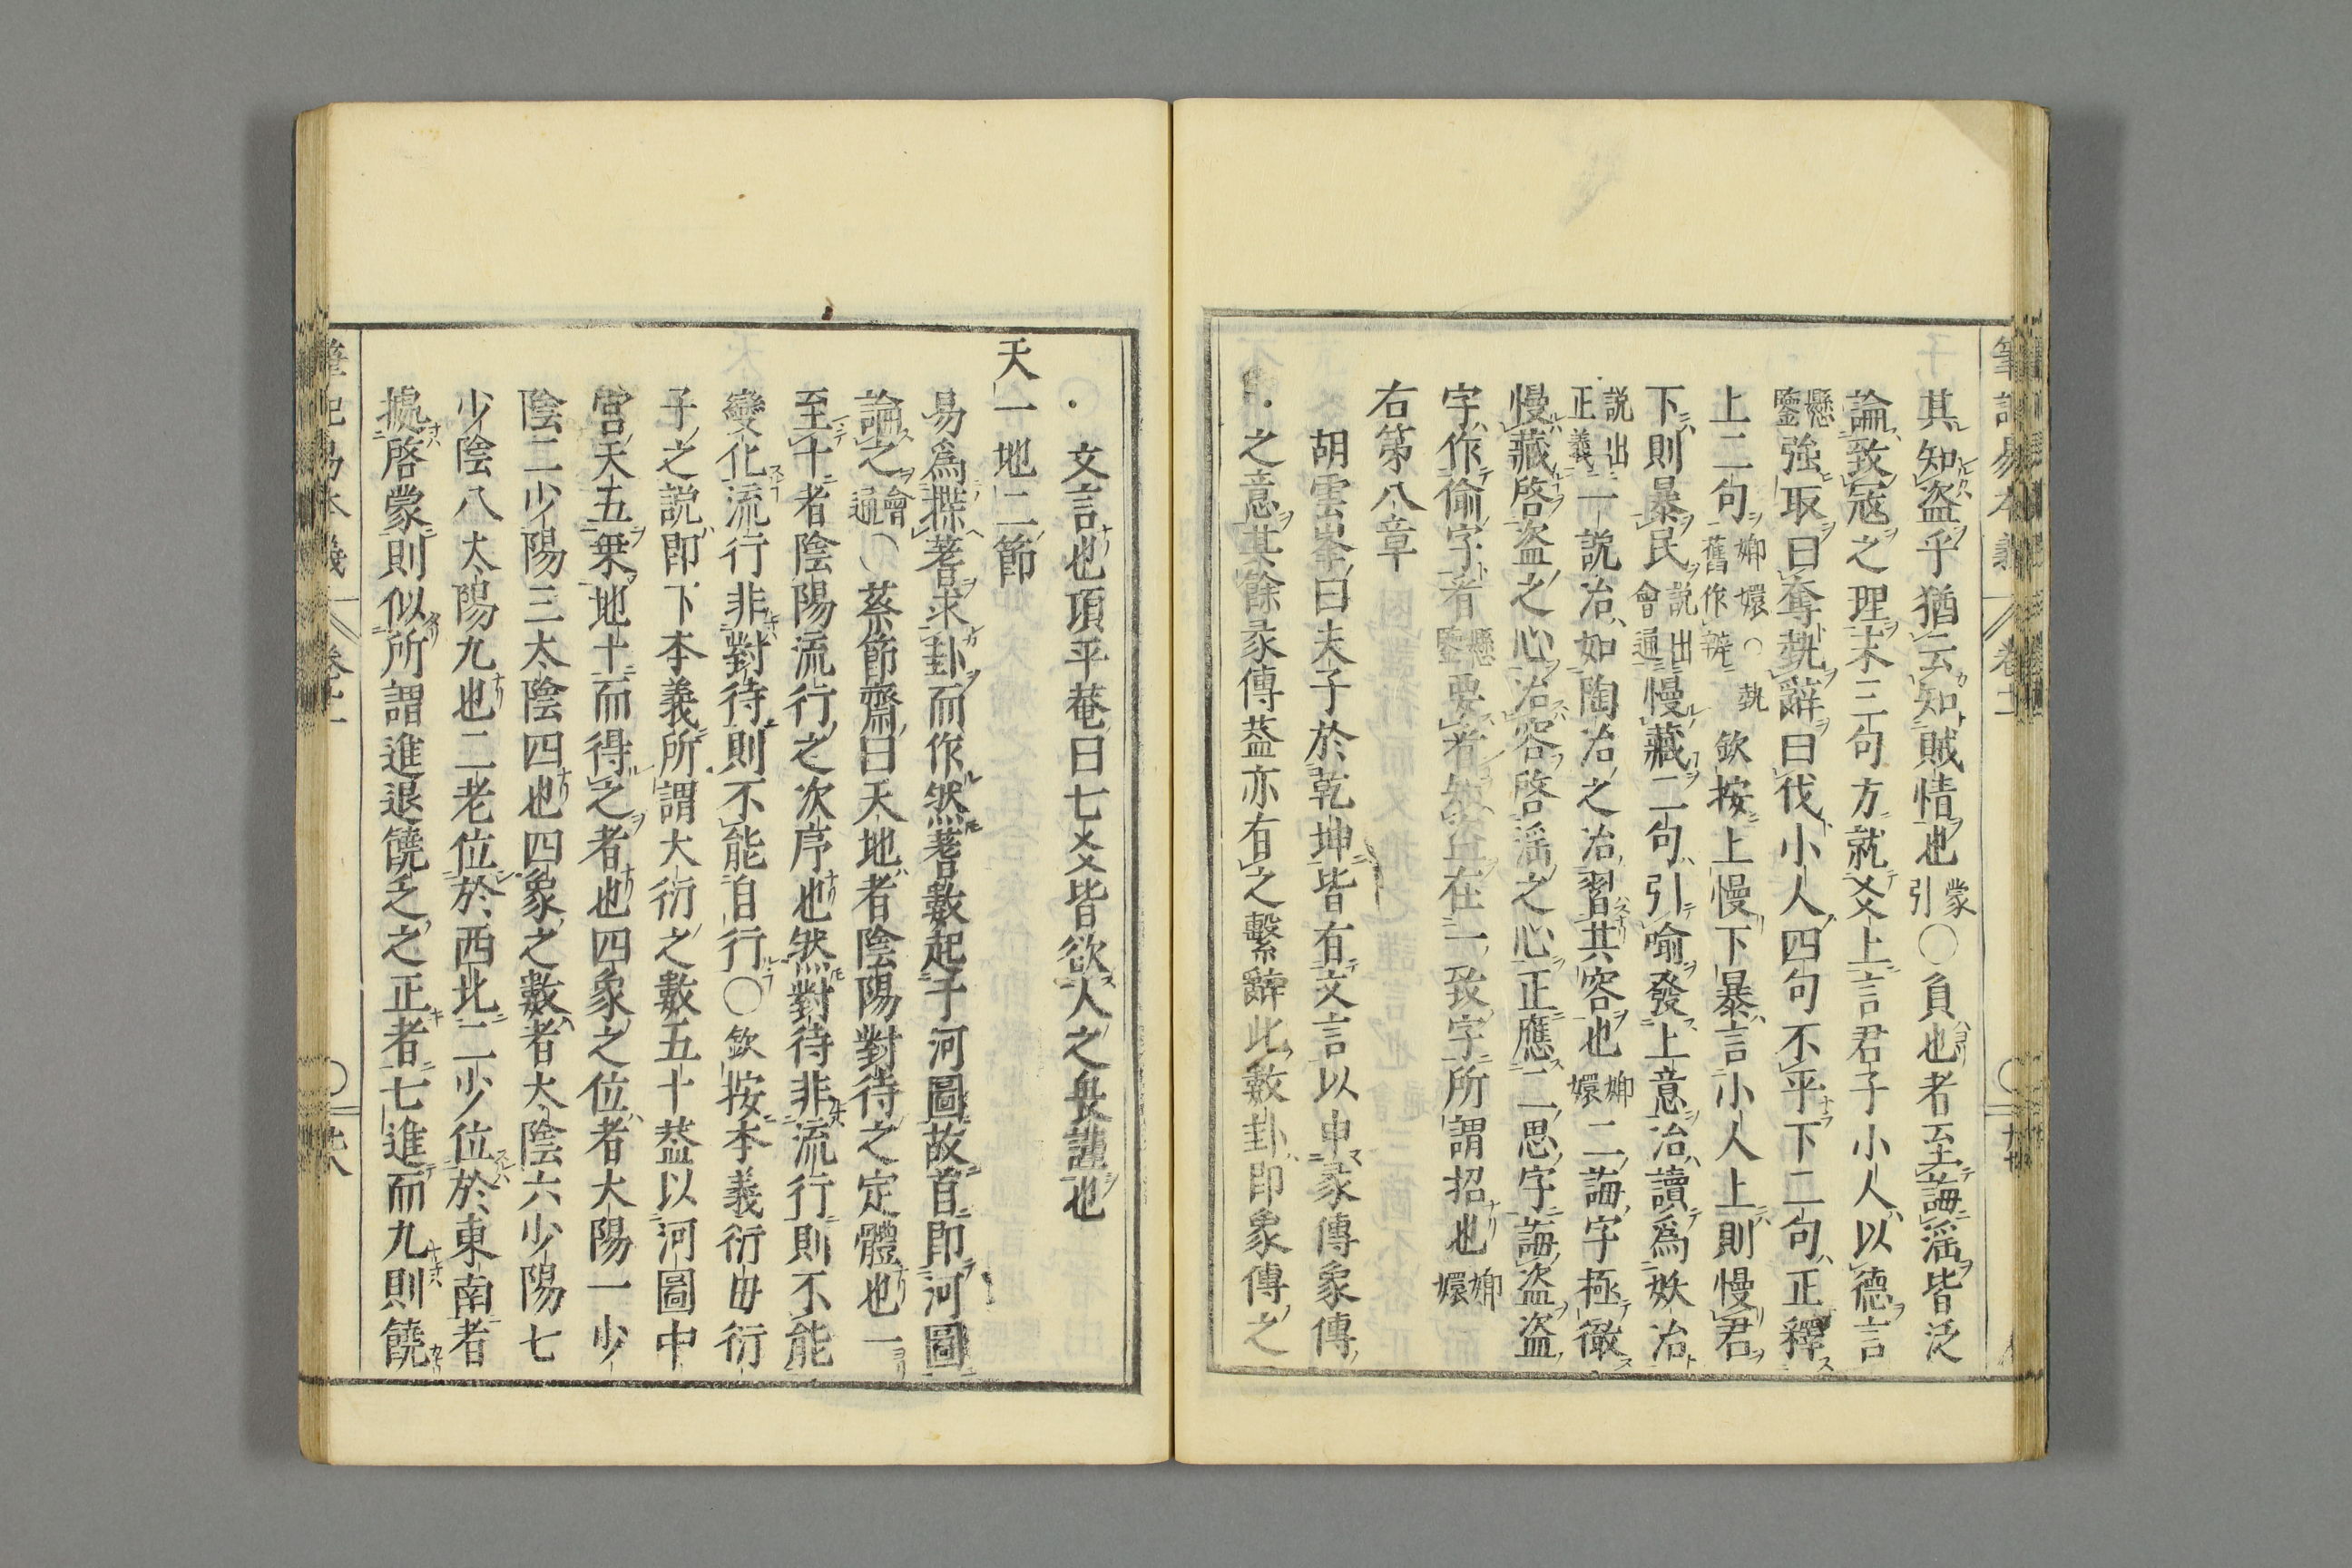 其知盗乎猶云知賊情也蒙引〇負也者至誨淫皆泛
論致寇之理末三句方就爻上言君子小人以德言
懸鑒強取曰奪執辭曰伐小人四句不平下二句正釋
上二句嫏嬛舊作辨〇執欽按上慢下暴言小人上則慢君
下則暴民説出會通慢藏二句引喻發上意冶讀爲妖冶
説出正義一説冶如陶冶之冶習其容也嫏嬛二誨字極徹
慢藏啓盗之心冶容啓淫之心正應二思字誨盗盗
字作偷字者懸鑒要者在一致字所謂招也嫏嬛
右第八章
胡雲峯曰夫子於乾坤皆有文言以申彖傳象傳
之意其餘彖傳葢亦有之繫辭此數卦即象傳之
文言也項平菴曰七爻皆欲人之畏謹也
天一地二節
易爲揲蓍求卦而作然蓍數起于河圖故首即河圖
論之會通〇蔡節齋曰天地者陰陽對待之定體也一
至十者陰陽流行之次序也然對待非流行則不能
變化流行非對待則不能自行〇欽按本義衍毋衍
子之説即下本義所謂大衍之數五十葢以河圖中
宮天五乗地十而得之者也四象之位者大陽一少
陰二少陽三太陰四也四象之數者太陰六少陽七
少陰八太陽九也二老位於西北二少位於東南者
據啓蒙則似所謂進退饒乏之正者七進而九則饒